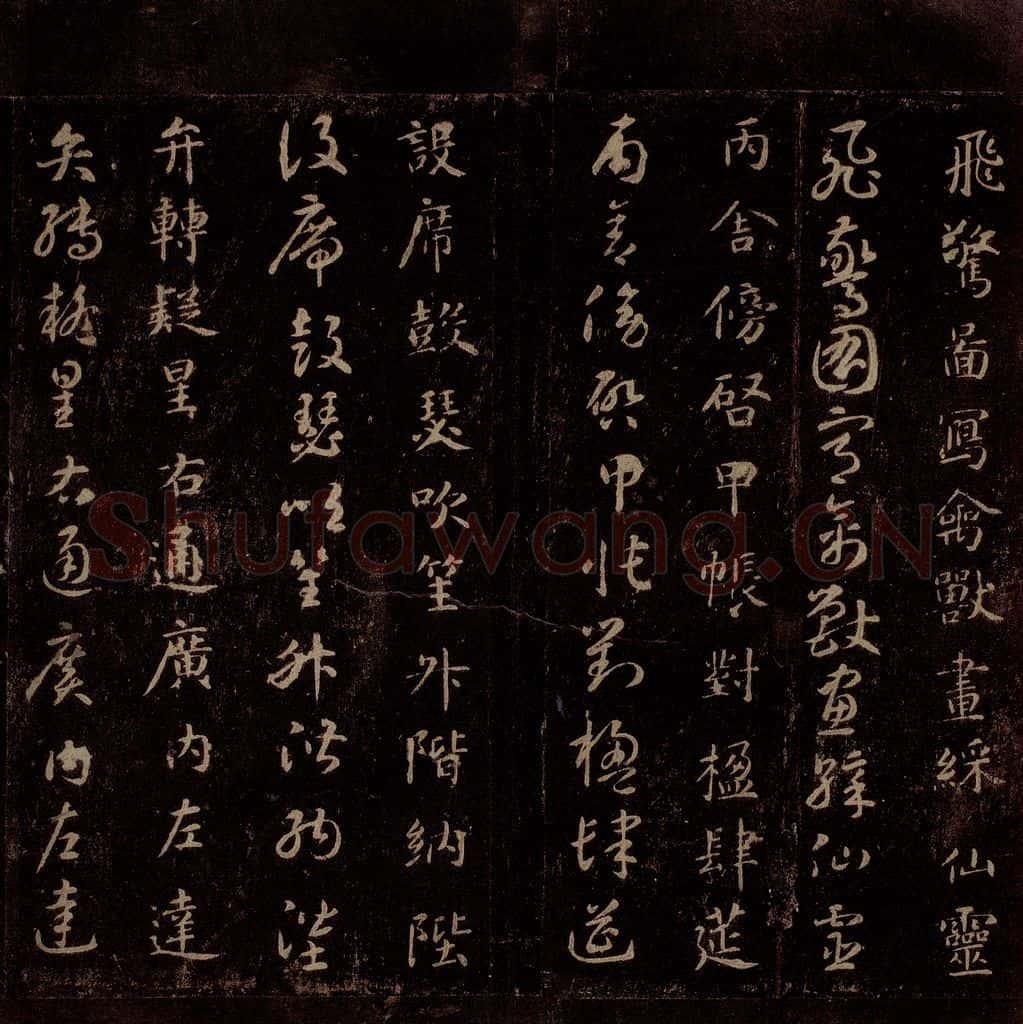 飛驚啚寫禽獸畫綵仙靈
飛驚圖寫禽獸畫綵仙靈
丙舍傍啓甲帳對楹肆莚
丙舍傍啓甲帳對楹肆莚
設席鼓瑟吹笙升階納陛
設席鼓瑟吹笙升階納陛
弁轉疑星右通廣内左達
弁轉疑星右通廣内左達
Shufawang.CN